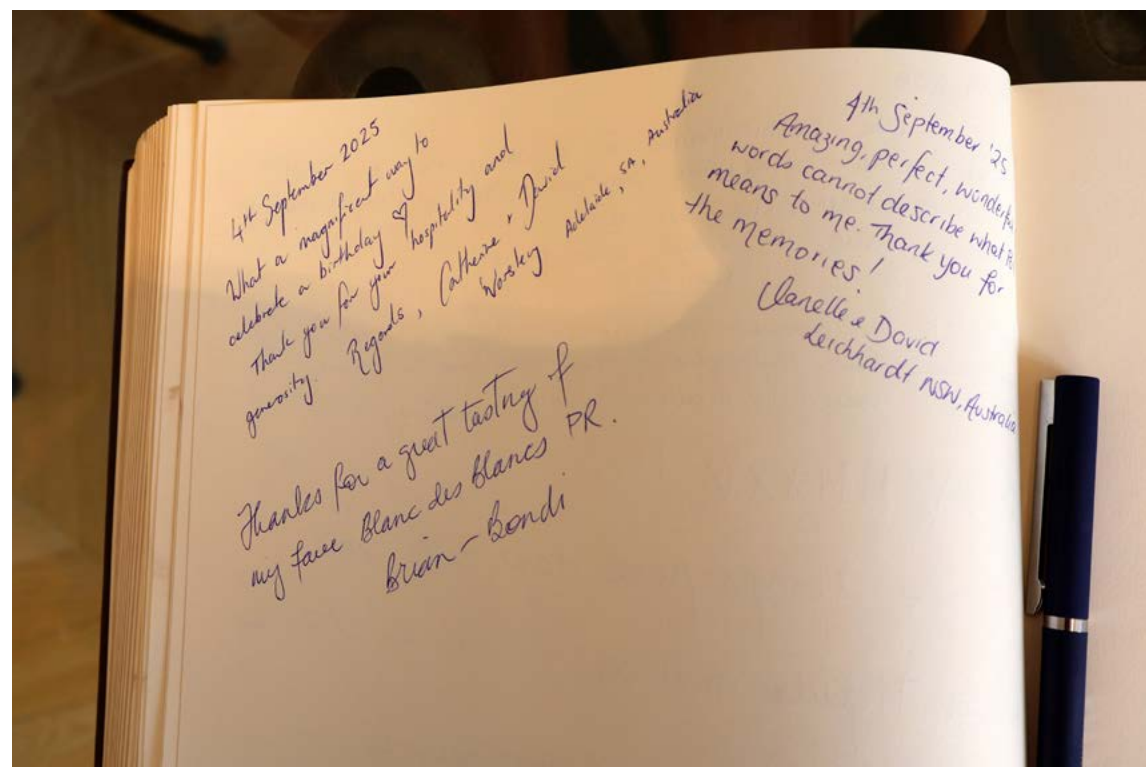 4th September 2025
What a magnificent way to
celebrate a birthday ♡
Thank you for your hospitality and
generosity. Regards, Catherine & David
Worsley Adelaide, SA, Australia
Thanks for a great tasting of
my fave Blanc des Blancs PR.
Brian - Bondi
4th September '25
Amazing, perfect, wonderful
words cannot describe what
means to me. Thank you for
the memories!
& David
Leichhardt NSW, Australia